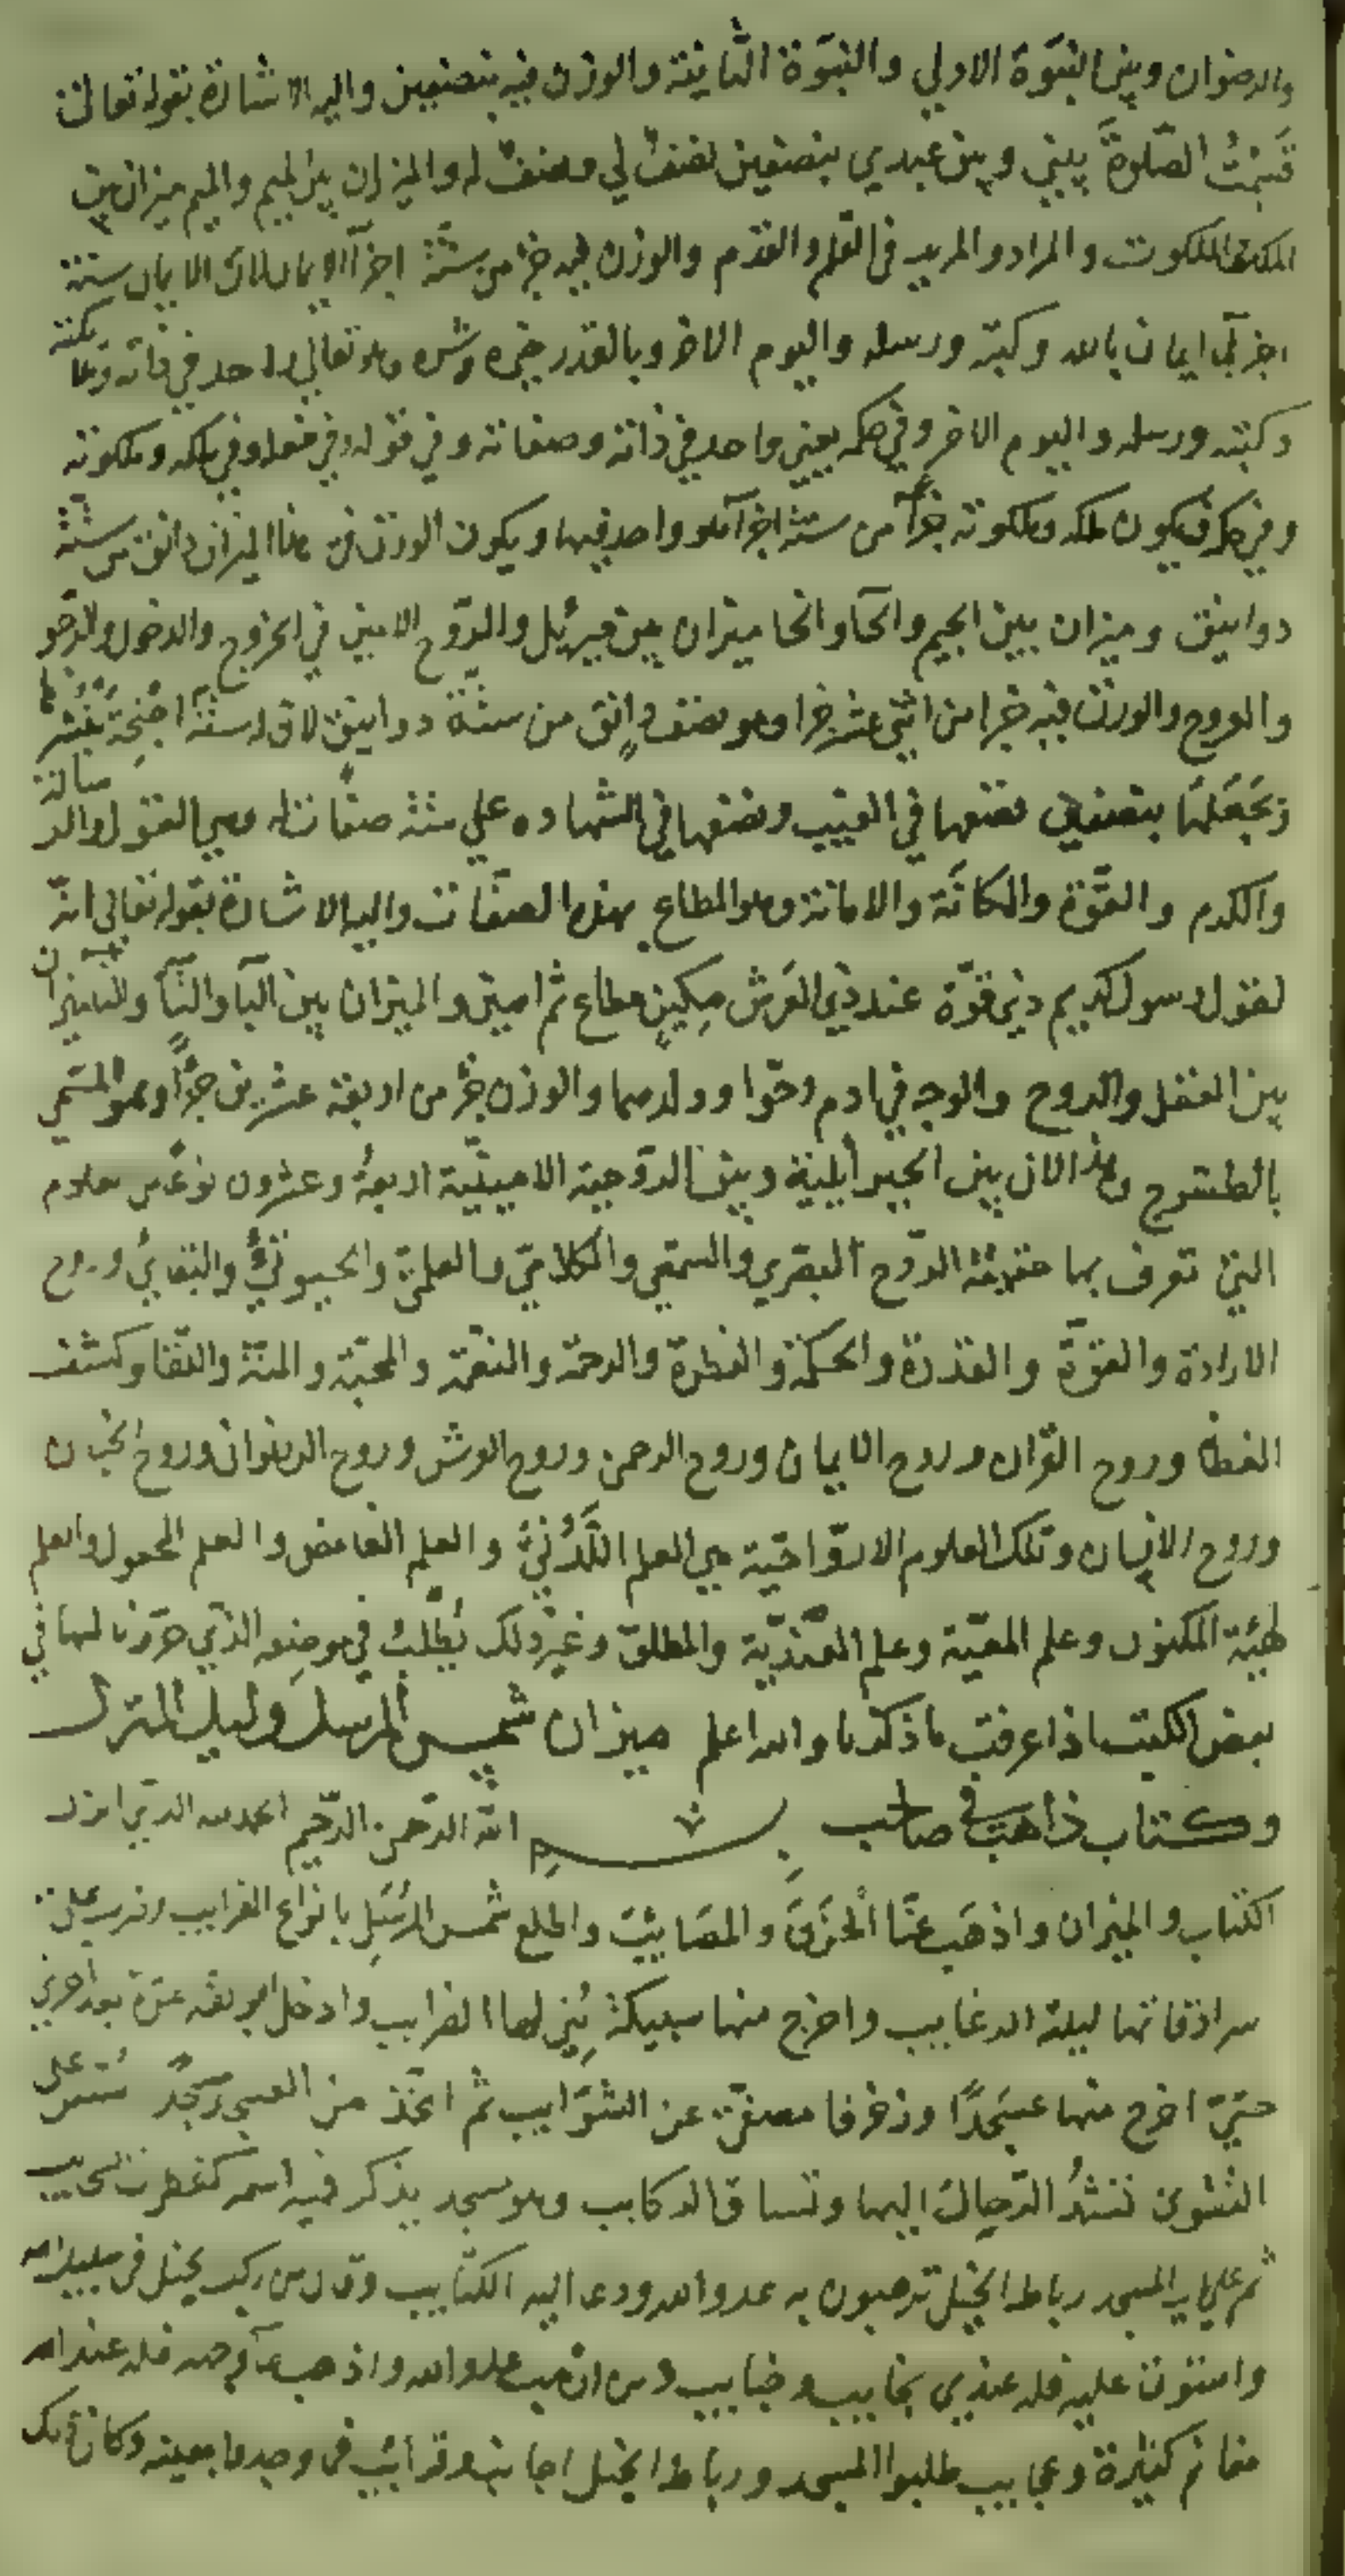 والرضوان وبين النبوة الاولي والنبوة الثانية والوزن فيه بنصفين واليه الاشارة بقوله تعالى
قسمت الصلوة بيني وبين عبدي بنصفين نصف لي ونصف له والميزان بين الميم والميم ميزان بين
الملك والملكوت والمراد والمريد في القلم والقدم والوزن فيه جزا من ستة اجزآ الايمان لان الايمان ستة
اجزآ ايمان بالله وكتبه ورسله واليوم الاخر وبالقدر خيره وشره وهو تعالي واحد في ذاته وملائكته
وكتبه ورسله واليوم الاخر وفي حكمه يعني واحد في ذاته وصفاته وفي قوله وفي فعله وفي ملكه وملكوته
وفي حكمه فيكون ملكه وملكوته جزآ من ستة اجزآ هو واحد فيها ويكون الوزن في هذا الميزان دانق من ستة
دوانيق وميزان بين الجيم والحآ والخا ميزان بين جبرئيل والروح الامين في الخروج والدخول والرجوع
والعروج والوزن فيه جزا من اثني عشر جزا وهو نصف دانق من ستة دوانيق لان له ستة اجنحة ينشرها
ويجعلها بنصفين نصفها في الغيب ونصفها في الشهاده علي ستة صفات له وهي القول والرسالة
والكرم والقوة والمكانة والامانة وهو المطاع بهذه الصفات واليه الاشارة بقوله تعالى انه
لقول رسول كريم ذي قوة عند ذي العرش مكين مطاع ثم امين والميزان بين البآ والتآ والثآ ميزان
بين العقل والروح والوجه في ادم وحوا وولدهما والوزن جز من اربعة عشرين جزآ وهو المسمي
بالطسوج وهذا لان بين الجبرائيلية وبين الروحية الامينية اربعة وعشرون نوعا من علوم
التي تعرف بها حقيقة الروح البصري والسمعي والكلامي والعلمي والحيوتي والبقايي وروح
الارادة والقوة والقدرة والحكمة والفطرة والرحمة والنعمة والمحبة والمنة واللقا وكشف
الغطا وروح القران وروح الايمان وروح الرحمن وروح العرش وروح الرضوان وروح الجنان
وروح الانسان وتلك العلوم الارواحية هي العلم اللدني والعلم الغامض والعلم المجعول والعلم
لهيئة المكنون وعلم المعية وعلم العندية والمطلق وغير ذلك يطلب في موضعه الذي حررنا لها في
بعض الكتب اذا عرفت ما ذكرنا والله اعلم ميزان شمس المرسل وليل المنزل
وكتاب ذاهب في صاحب بسم الله الرحمن الرحيم الحمد لله الذي انزل
الكتاب والميزان واذهب عنا الحزن والمصايب واطلع شمس المرسل بانواع الغرايب وضرب علي
سرادقاتها ليلة الرغايب واخرج منها سبيكة يزيلها الضرايب وادخل البوتقه مرة بعد اخرى
حتى اخرج منها عسجدا وزخرفا مصفي عن الشوايب ثم اتخذ من العسجد مسجد اسس على
التقوى تشد الرحال اليها وتساق الركايب وهو مسجد يذكر فيه اسمه كقطرات السحايب
ثم علي باب المسجد رباط الخيل ترهبون به عدو الله ودعا اليه الكتايب وقال من ركب بخيل في سبيل الله
واستوت عليه فله عندي نجايب وجنايب ومن ارهب عدو الله واذهب فله عند الله
مغانم كثيرة وعجايب طلبوا المسجد ورباط الخيل اجانب وقرائب فما وجدها بعينه وكان